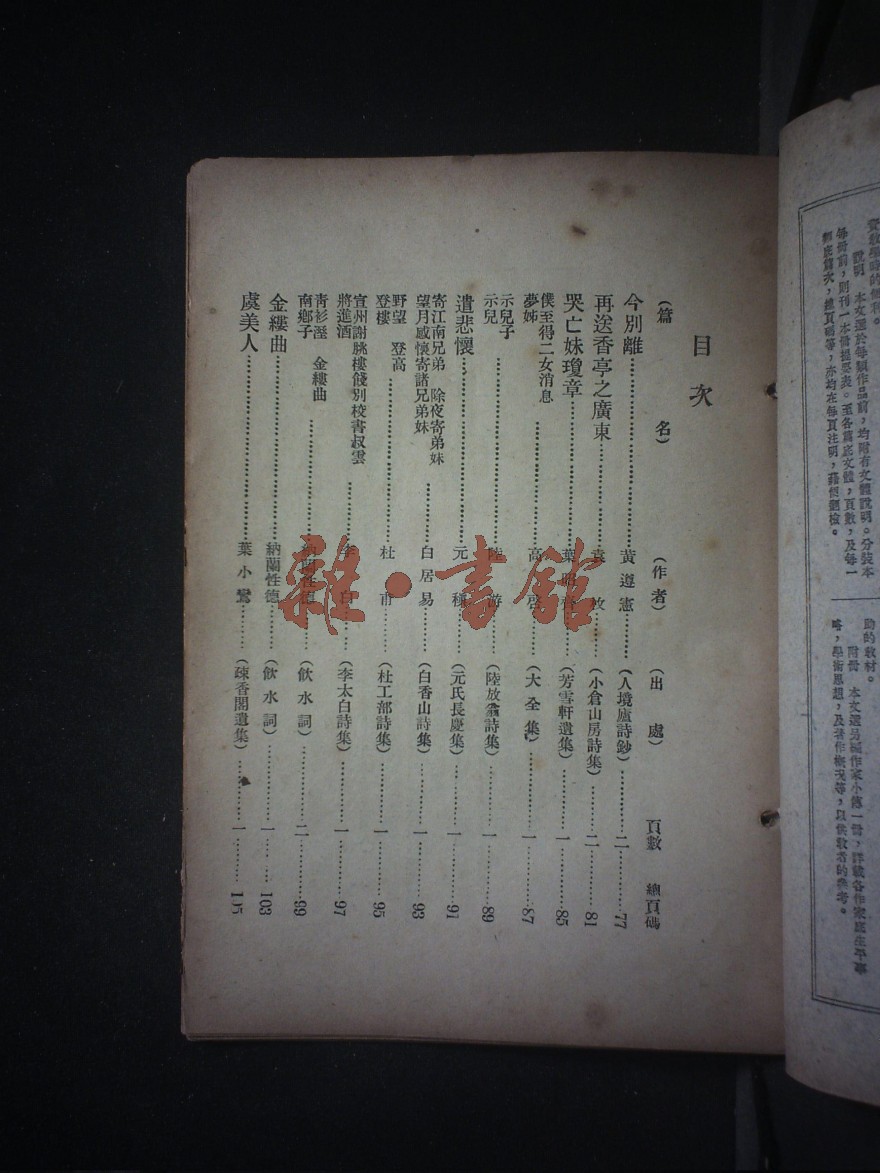 資教學時的便利。
說明 本文選於每類作品前,均附有文體說明。分裝本
每冊前,則刊一本冊提要表。至各篇底文體,頁數,及每一
冊底篇次,總頁碼等,亦均在每頁注明,藉便翻檢。
助的教材。
附冊 本文選另編作家小傳一冊,詳載各作家底生平事
略,學術思想,及著作概况等,以供教者的參考。
目次
(篇名) (作者) (出處) 頁數 總頁碼
今別離 黃遵憲 (人境廬詩鈔) 二 77
再送香亭之廣東 袁枚 (小倉山房詩集) 二 81
哭亡妹瓊章 葉昭齊 (芳雪軒遺集) 一 85
僕至得二女消息
夢姊 高啓 (大全集) 一 87
示兒子
示兒 陸游 (陸放翁詩集) 一 89
遣悲懷 元稹 (元氏長慶集) 一 91
寄江南兄弟 除夜寄弟妹
望月感懷寄諸兄弟妹 白居易 (白香山詩集) 一 93
野望 登高
登樓 杜甫 (杜工部詩集) 一 95
宣州謝朓樓餞別校書叔雲
將進酒 李白 (李太白詩集) 一 97
青衫溼 金縷曲
南鄉子 納蘭性德 (飲水詞) 二 99
金縷曲 納蘭性德 (飲水詞) 一 103
虞美人 葉小鸞 (疎香閣遺集) 一 105
雜·書館